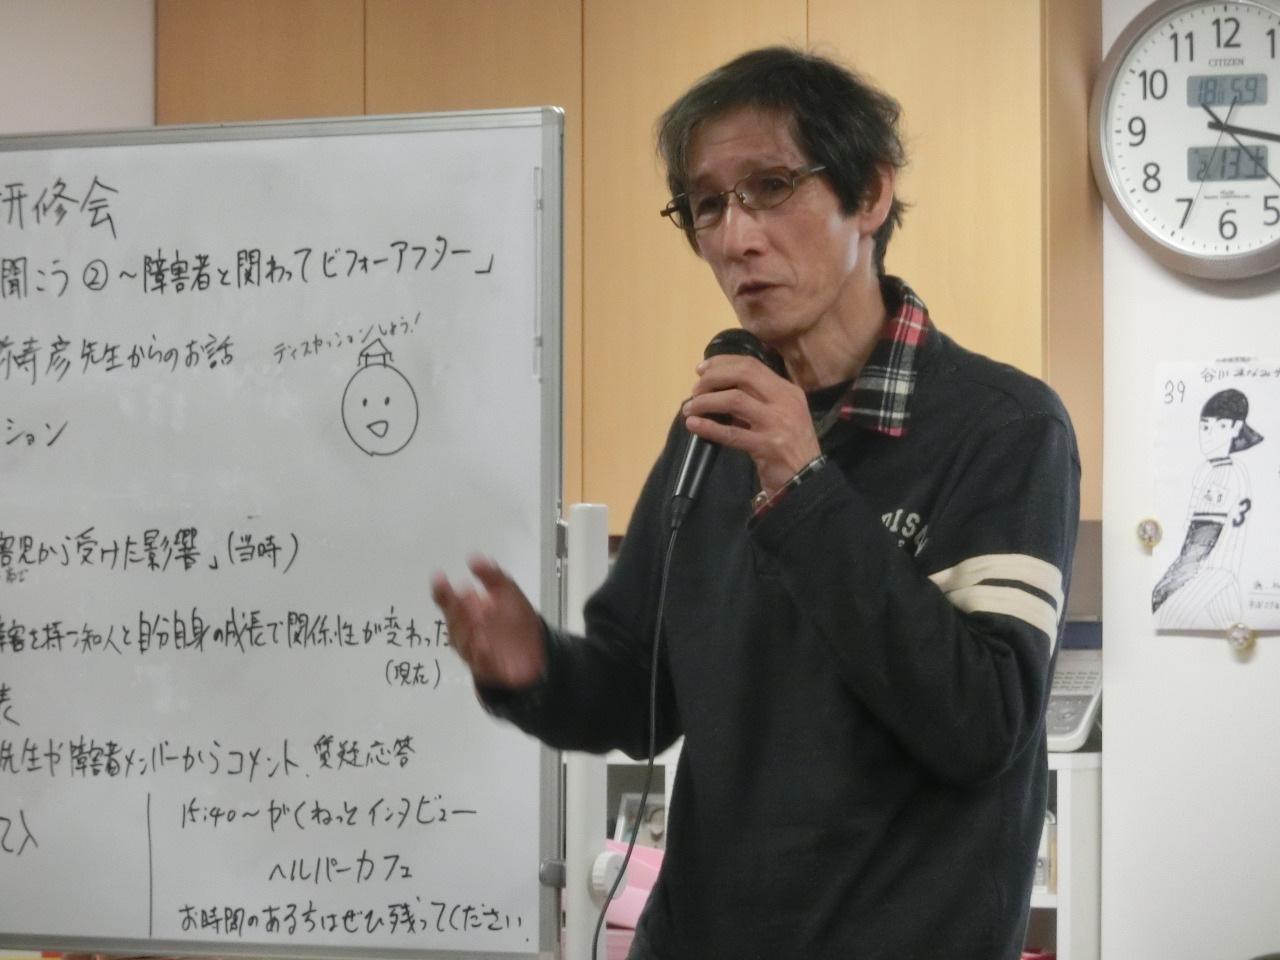 研修会
聞こう②～障害者と関わってビフォーアフター」
寿彦先生からのお話
ディスカッションしよう！
ション
害児から受けた影響」(当時)
障害を持つ知人と自分自身の成長で関係性が変わった
(現在)
表
先生や障害者メンバーからコメント、質疑応答
15:40～がくねっとインタビュー
ヘルパーカフェ
お時間のある方はぜひ残ってください.
12
11
10
9
8
7
6
5
CITIZEN
18 59
39
谷川
3